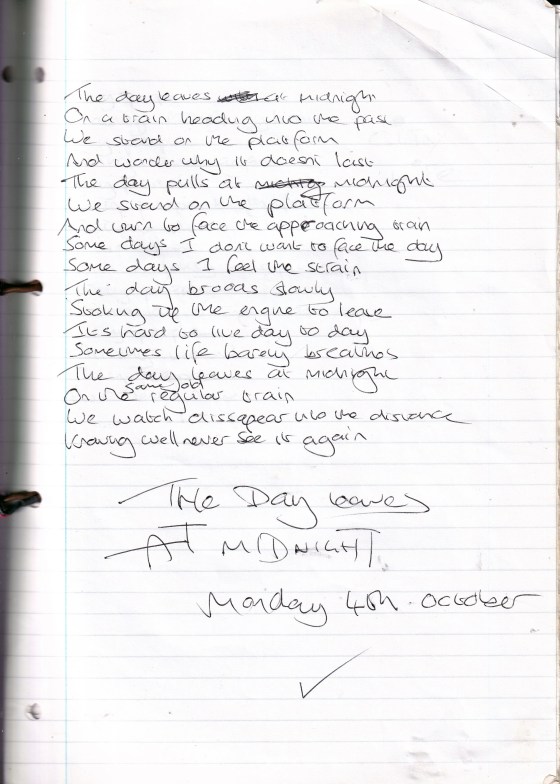 The day leaves at midnight
On a train heading into the past
We stand on the platform
And wonder why it doesnt last
The day pulls at midnight
We stand on the platform
And turn to face the approaching train
Some days I dont want to face the day
Some days I feel the strain
The day broods slowly
Stoking up the engine to leave
Its hard to live day to day
Sometimes life barely breathes
The day leaves at midnight
On the same old regular train
We watch dissapear into the distance
Knowing well never see it again
The Day leaves
AT MIDNIGHT
Monday 4th. October